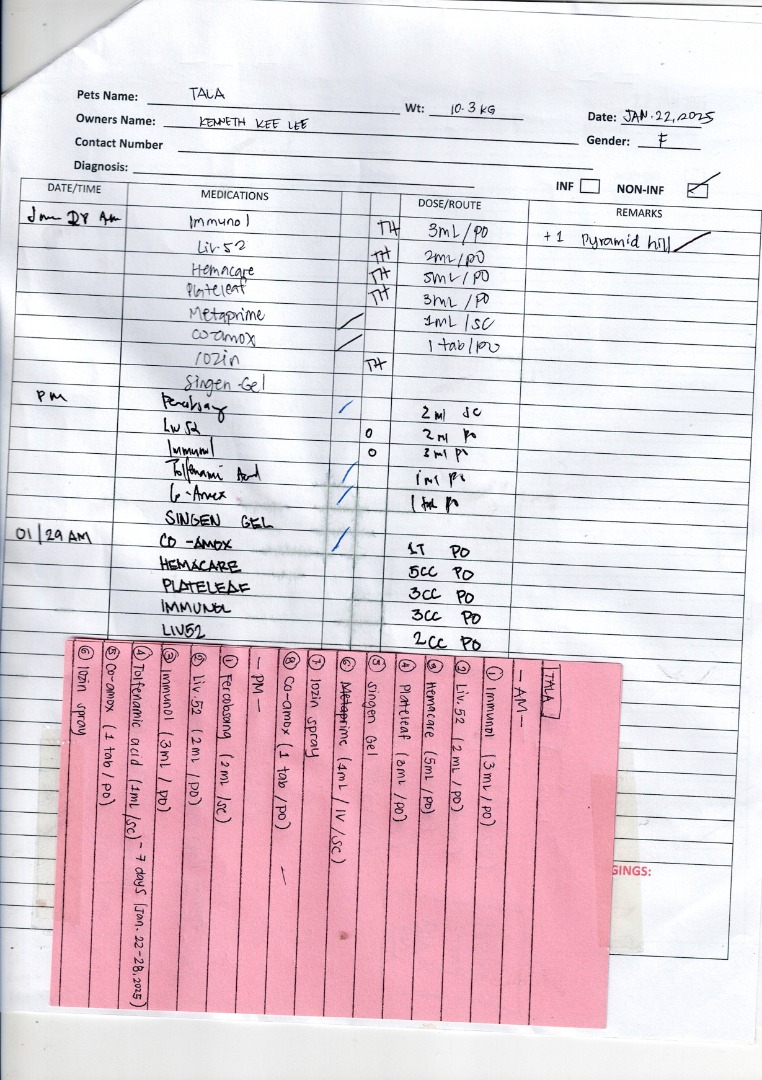 Pets Name: TALA Wt: 10.3 KG
Owners Name: KENNETH KEE LEE Date: JAN.22,2025
Contact Number Gender: F
Diagnosis:
INF NON-INF
DATE/TIME MEDICATIONS DOSE/ROUTE REMARKS
Jan 28 Am Immunol TH 3mL/PO +1 Pyramid hill
Liv.52 TH 2mL/PO
Hemacare TH 5mL/PO
Plateleaf TH 3mL/PO
Metaprime 1mL/SC
Co-amox 1 tab/PO
Iozin TH
Singen-Gel
PM 2ml SC
Liv 52 0 2ml Po
Immunol 0 3ml Po
Tolfenami Acid 1ml Po
Co-Amox 1 tab Po
SINGEN GEL
01/29 AM CO-AMOX 1T PO
HEMACARE 5CC PO
PLATELEAF 3CC PO
IMMUNOL 3CC PO
LIV52 2CC PO
GINGS:
TALA
-AM-
① Immunol (3mL/PO)
② Liv.52 (2mL/PO)
③ Hemacare (5mL/PO)
④ Plateleaf (3mL/PO)
⑤ Singen Gel
⑥ Metaprime (1mL/IV/SC)
⑦ Iozin spray
⑧ Co-amox (1 tab/PO)
-PM-
① Fercobsang (2mL/SC)
② Liv.52 (2mL/PO)
③ Immunol (3mL/PO)
④ Tolfenamic acid (1mL/SC)-7 days (Jan.22-28,2025)
⑤ Co-amox (1 tab/PO)
⑥ Iozin spray